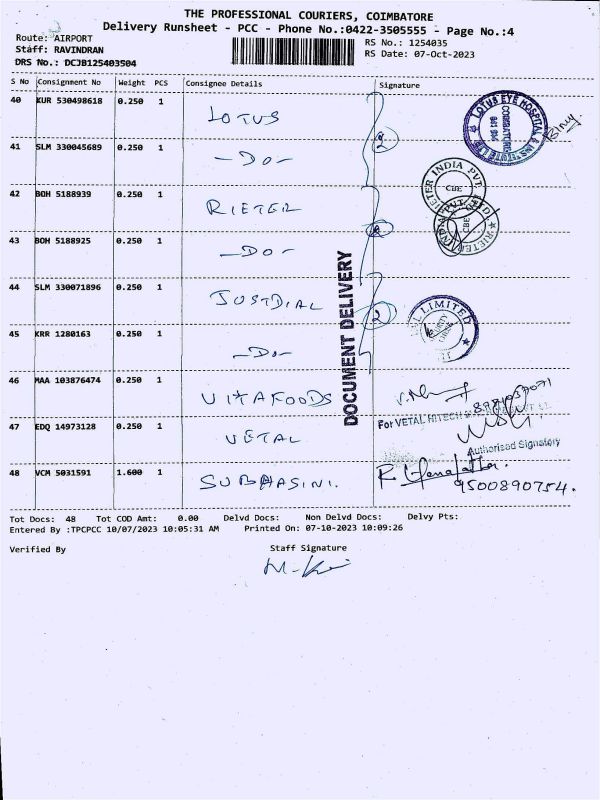 THE PROFESSIONAL COURIERS, COIMBATORE
Delivery Runsheet - PCC - Phone No.:0422-3505555 - Page No.:4
Route: AIRPORT
Staff: RAVINDRAN
DRS No.: DCJB125403504
RS No.: 1254035
RS Date: 07-Oct-2023
S No Consignment No Weight PCS Consignee Details Signature
40 KUR 530498618 0.250 1 LOTUS
LOTUS EYE HOSPITAL & INSTITUTE LTD
COIMBATORE
41 SLM 330045689 0.250 1 -DO- 2
42 BOH 5188939 0.250 1 RIETER
RIETER INDIA PVT. LTD.
CBE
43 BOH 5188925 0.250 1 -DO-
44 SLM 330071896 0.250 1 JUSTDIAL 2
LIMITED
45 KRR 1280163 0.250 1 -DO-
DOCUMENT DELIVERY
46 MAA 103876474 0.250 1 VITAFOODS
47 EDQ 14973128 0.250 1 VETAL
For VETAL HITECH
Authorised Signatory
48 VCM 5031591 1.600 1 SUBHASINI.
9500890754.
Tot Docs: 48 Tot COD Amt: 0.00 Delvd Docs: Non Delvd Docs: Delvy Pts:
Entered By :TPCPCC 10/07/2023 10:05:31 AM Printed On: 07-10-2023 10:09:26
Verified By Staff Signature